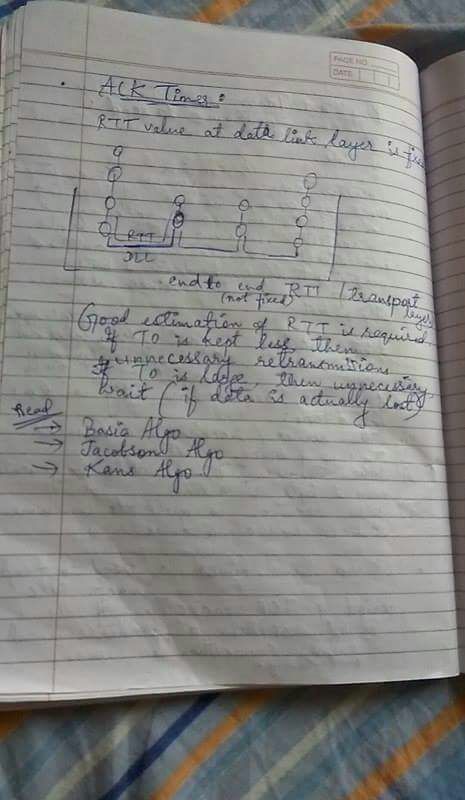 PAGE NO.
DATE
ACK Timer:
RTT value at data link layer is fixe
RTT
DLL
end to end RTT / transport layer
(not fixed)
Good estimation of RTT is required
If TO is kept less then
unnecessary retransmissions
If TO is large, then unnecessary
wait (if data is actually lost)
Read
→ Basia Algo
→ Jacobson Algo
→ Kans Algo